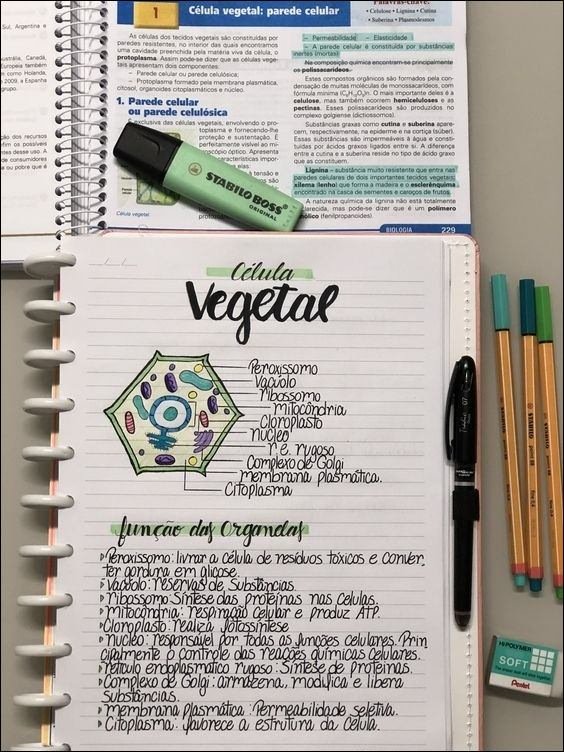 Sul, Argentina e
ustrália, Canadá,
Europeia também
como Holanda,
2009, a Espanha
grupo.
dão dos recursos
dos
de consumidores
ou pobre que é
1 Célula vegetal: parede celular
Palavras-chave:
• Celulose • Lignina • Cutina
• Suberina • Plasmodesmos
As células dos tecidos vegetais são constituídas por
paredes resistentes, no interior das quais encontramos
uma cavidade preenchida pela matéria viva da célula, o
protoplasma. Assim pode-se dizer que as células vege-
tais apresentam dois componentes:
– Parede celular ou parede celulósica;
– Protoplasma formado pela membrana plasmática,
citosol, organoides citoplasmáticos e núcleo.
1. Parede celular
ou parede celulósica
exclusiva das células vegetais, envolvendo o pro-
toplasma e fornecendo-lhe
proteção e sustentação. É
perfeitamente visível ao mi-
croscópio óptico. Apresenta
características impor-
elas:
Célula vegetal.
– Permeabilidade – Elasticidade
– A parede celular é constituída por substâncias
inertes (mortas)
Na composição química encontram-se principalmente
os polissacarídeos.
Estes compostos orgânicos são formados pela con-
densação de muitas moléculas de monossacarídeos, com
fórmula mínima (C₆H₁₀O₅)n. O mais importante deles é a
celulose, mas também ocorrem hemiceluloses e as
pectinas. Esses polissacarídeos são produzidos no
complexo golgiense (dictiossomos).
Substâncias graxas como cutina e suberina apare-
cem, respectivamente, na epiderme e na cortiça (súber).
Essas substâncias são impermeáveis à água e consti-
tuídas por ácidos graxos ligados entre si. A diferença
entre a cutina e a suberina reside no tipo de ácido graxo
que as constituem.
Lignina – substância muito resistente que entra nas
paredes celulares de dois importantes tecidos vegetais:
xilema (lenho) que forma a madeira e o esclerênquima
encontrado na casca de sementes e caroços de frutos.
A natureza química da lignina não está totalmente
esclarecida, mas pode-se dizer que é um polímero
fenólico (fenilpropanoides).
BIOLOGIA 229
STABILO BOSS
ORIGINAL
Célula
Vegetal
Peroxissomo
Vacúolo
Ribossomo
Mitocôndria
Cloroplasto
Núcleo
r.e. rugoso
Complexo de Golgi
membrana plasmática.
Citoplasma
função das Organelas
Peroxissomo: livrar a célula de resíduos tóxicos e conver-
ter gordura em glicose
Vacúolo: reservas de Substâncias.
Ribossomo: Síntese das proteínas nas células.
Mitocôndria: respiração celular e produz ATP.
Cloroplasto: realiza fotossíntese
Núcleo: responsável por todas as funções celulares. Prin
cipalmente o controle das reações químicas celulares.
retículo endoplasmático rugoso: Síntese de proteínas.
Complexo de Golgi: armazena, modifica e libera
substâncias.
Membrana plasmática: Permeabilidade seletiva.
Citoplasma: favorece a estrutura da célula.
STABILO
STABILO
STABILO
HI-POLYMER
SOFT
Pentel